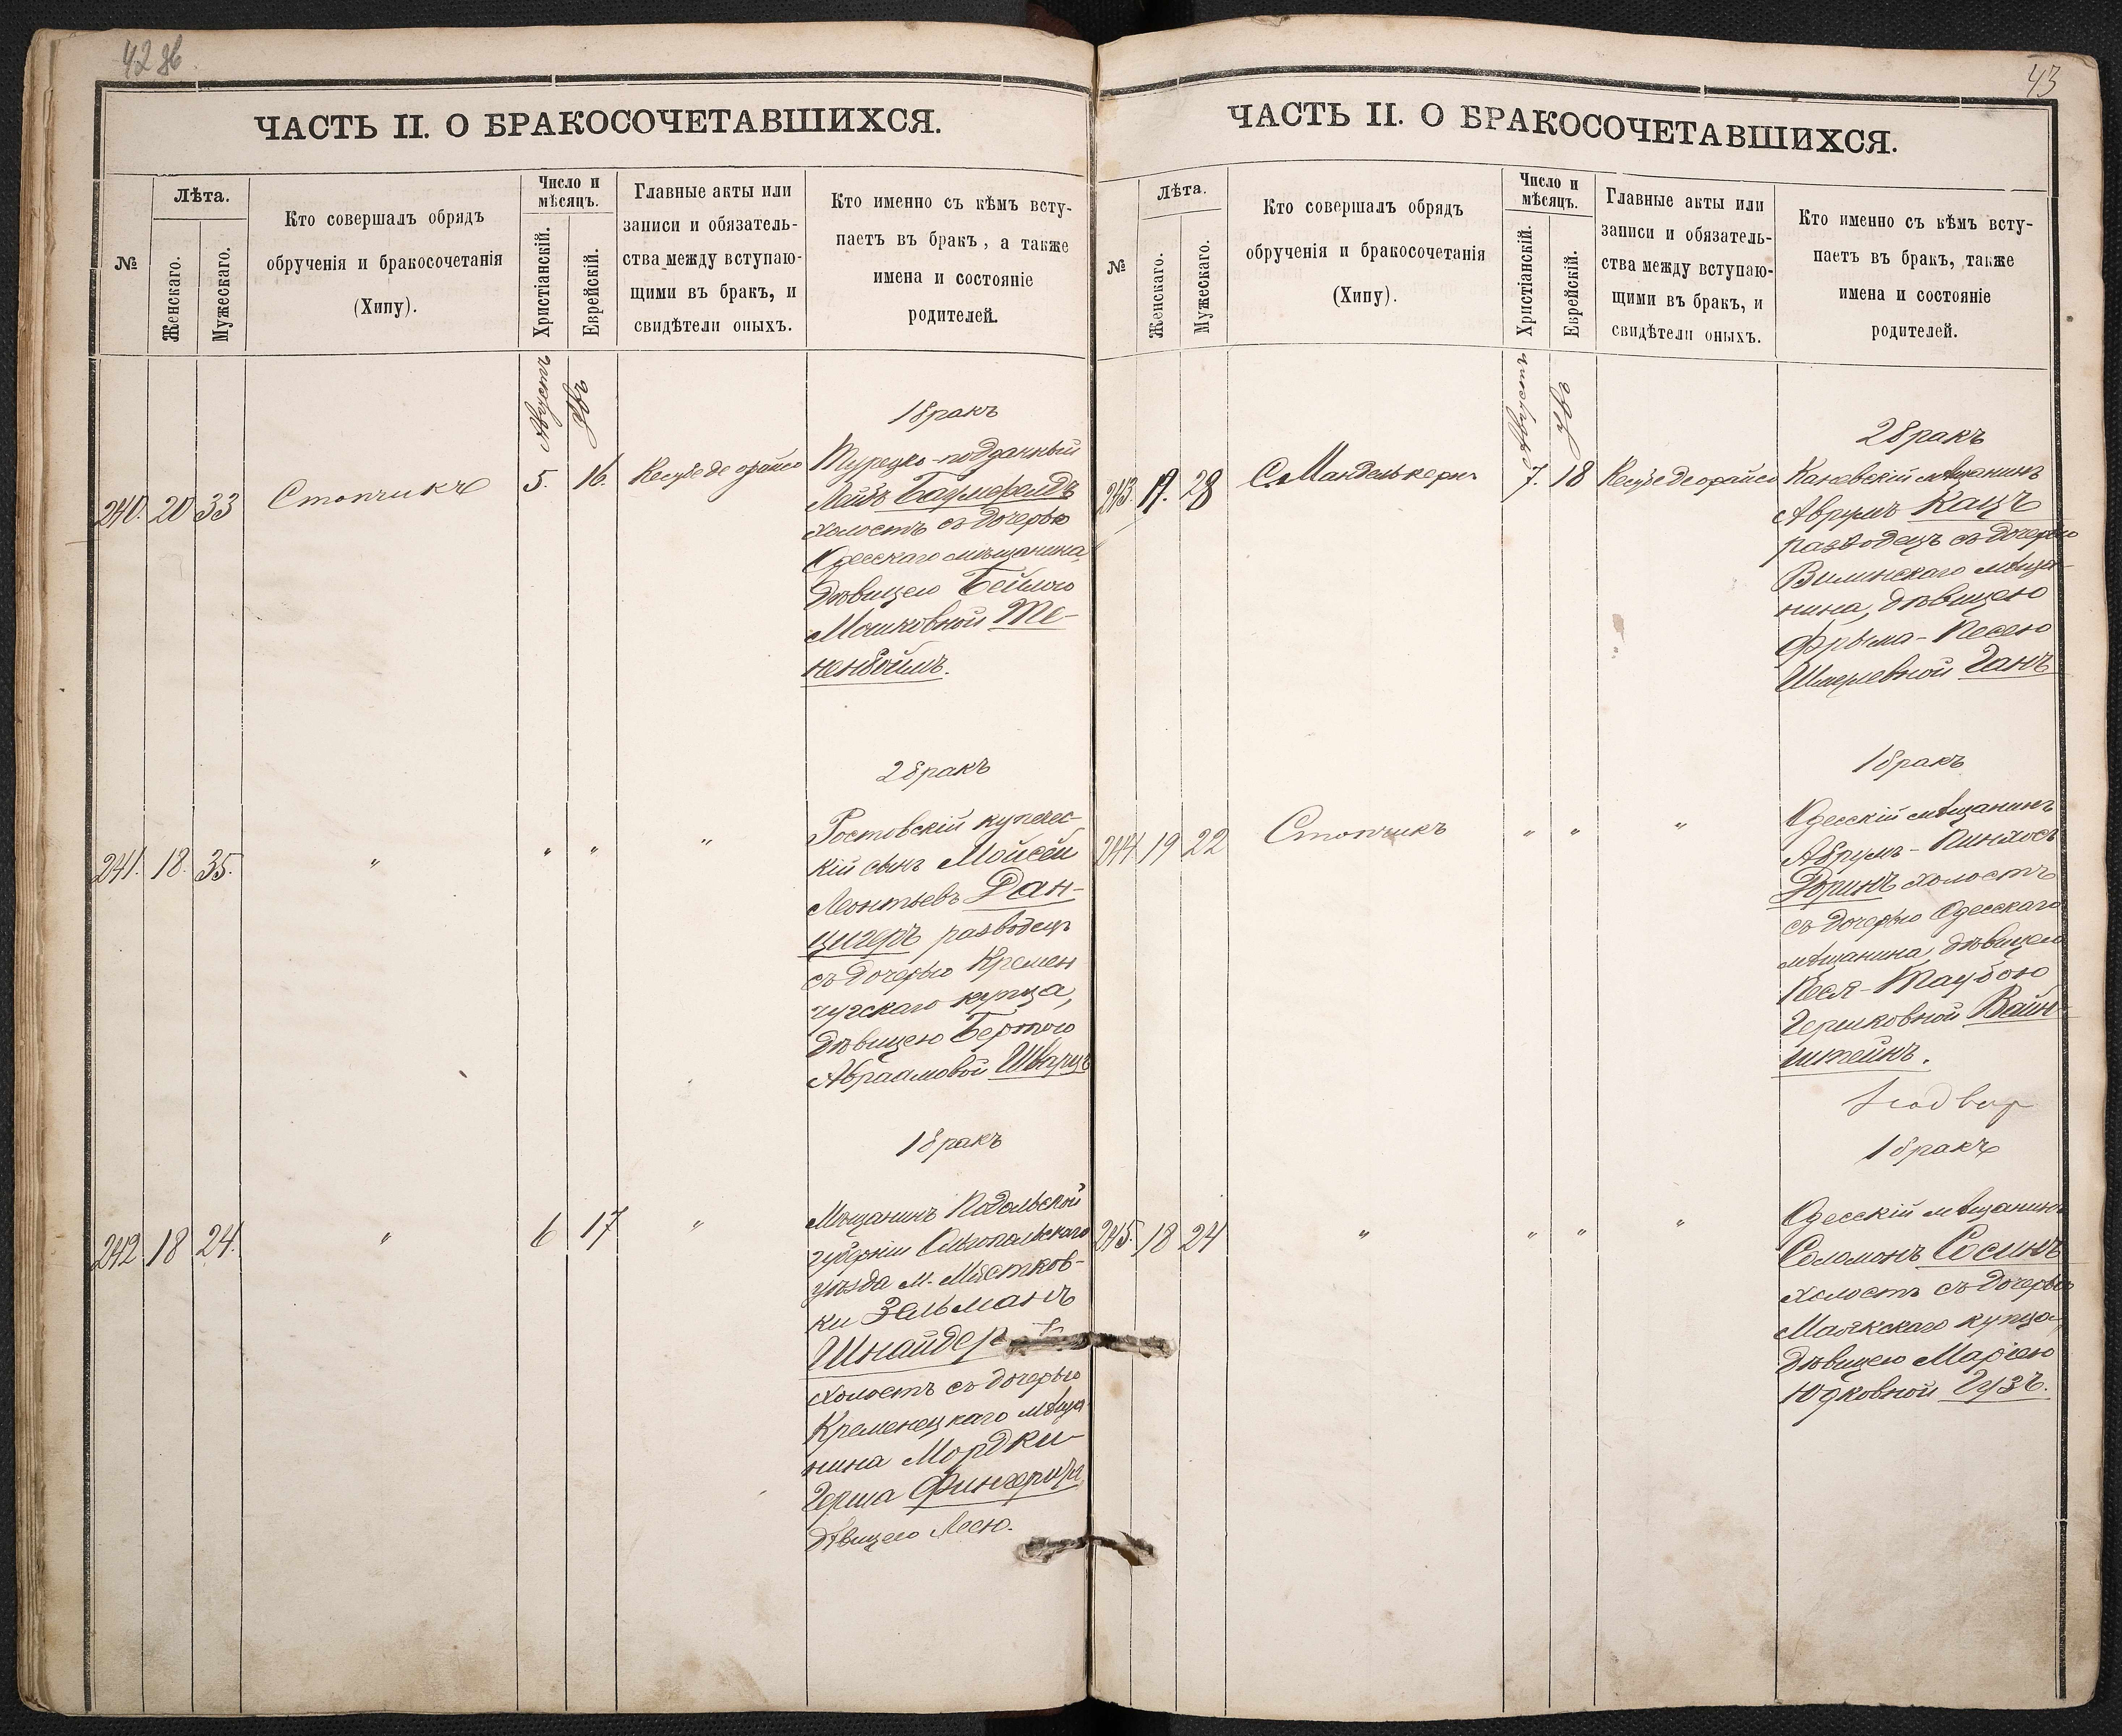 42 зв.
ЧАСТЬ II. О БРАКОСОЧЕТАВШИХСЯ.
№
Лѣта.
Женскаго.
Мужескаго.
Кто совершалъ обрядъ
обрученія и бракосочетанія
(Хипу).
Число и
мѣсяцъ.
Христіанскій.
Еврейскій.
Главные акты или
записи и обязатель-
ства между вступаю-
щими въ бракъ, и
свидѣтели оныхъ.
Кто именно съ кѣмъ всту-
паетъ въ бракъ, а также
имена и состояніе
родителей.
Августъ
Элулъ
240. 20 33 Столчикъ 5. 16.
1 бракъ
Турецко-подданный
Лейбъ
холостъ съ дочерью
Одесскаго мѣщанина,
дѣвицею Бейлою
Мошковной Те-
ненбоймъ.
241. 18. 35. " " " "
2 бракъ
Ростовскій купечес-
кій сынъ Мойсей
Леонтьевъ Дан-
цигеръ разводецъ
съ дочерью Кремен
чугскаго купца,
дѣвицею Бертою
Абраамовой Шварцъ
242. 18 24. " 6 17 "
1 бракъ
Мѣщанинъ Подольской
губерніи Ольгопольскаго
уѣзда м. Мястков-
ки Зельманъ
Шнайдер
холостъ съ дочерью
Кременецкаго мѣща-
нина Мордки-
Герша
дѣвицею Лесю.
43
ЧАСТЬ II. О БРАКОСОЧЕТАВШИХСЯ.
№
Лѣта.
Женскаго.
Мужескаго.
Кто совершалъ обрядъ
обрученія и бракосочетанія
(Хипу).
Число и
мѣсяцъ.
Христіанскій.
Еврейскій.
Главные акты или
записи и обязатель-
ства между вступаю-
щими въ бракъ, и
свидѣтели оныхъ.
Кто именно съ кѣмъ всту-
паетъ въ бракъ, также
имена и состояніе
родителей.
Августъ
Элулъ
243. 19. 28 С. Манделькернъ 7. 18
2 бракъ
Каневскій мѣщанинъ
Аврумъ Кацъ
разводецъ съ дочерью
Виленскаго мѣща-
нина, дѣвицею
Фрыма-Песею
Шмерлевной Ганъ
244. 19 22 Столчикъ " " "
1 бракъ
Одесскій мѣщанинъ
Абрумъ-Пинхосъ
холостъ
съ дочерью Одесскаго
мѣщанина, дѣвицею
Песя-Таубою
Гершковной Вайн-
штейнъ.
245. 18 24 " " " "
1 бракъ
Одесскій мѣщанинъ
Соломонъ Сосинъ
холостъ съ дочерью
Маякскаго купца,
дѣвицею Маріею
Юдковной Гузъ.